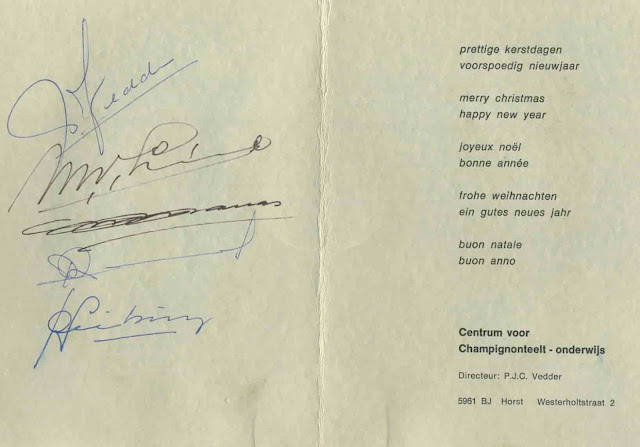 Vedder
prettige kerstdagen
voorspoedig nieuwjaar
merry christmas
happy new year
joyeux noël
bonne année
frohe weihnachten
ein gutes neues jahr
buon natale
buon anno
Centrum voor
Champignonteelt - onderwijs
Directeur: P.J.C. Vedder
5961 BJ Horst Westerholtstraat 2